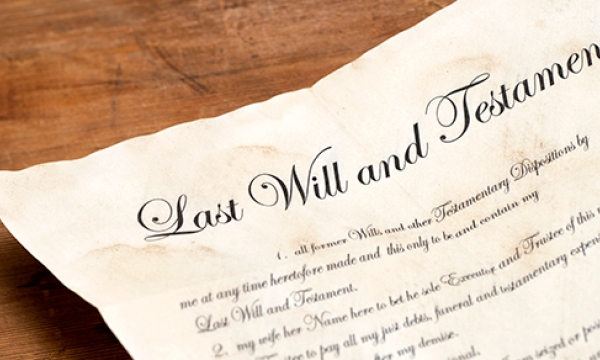 Last Will and Testamen
1. all former Wills and other Testamentary Dispositions by
me at any time heretofore made and this only to be and contain my
Last Will and Testament.
2. my wife her Name here to bet he sole Executor and Trustee of this
to pay all my just debts, funeral and testamentary expen
after my demise.
or